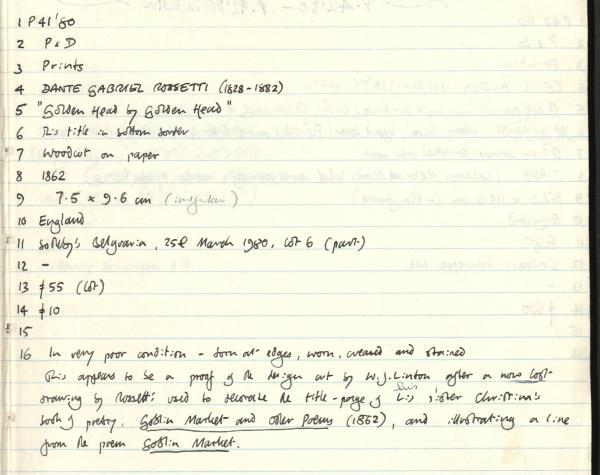 1 P41'80
2 P&D
3 Prints
4 DANTE GABRIEL ROSSETTI (1828-1882)
5 "Golden Head by Golden Head"
6 This title in bottom border
7 Woodcut on paper
8 1862
9 7.5 x 9.6 cm (irregular)
10 England
11 Sotheby's Belgravia, 25th March 1980, Lot 6 (part.)
12 -
13 £55 (Lot)
14 £10
15
16 In very poor condition - torn at edges, worn, creased and stained
This appears to be a proof of the design cut by W.J. Linton after a now lost
drawing by Rossetti used to decorate the title-page of his sister Christina's
book of poetry, Goblin Market and Other Poems (1862), and illustrating a line
from the poem Goblin Market.